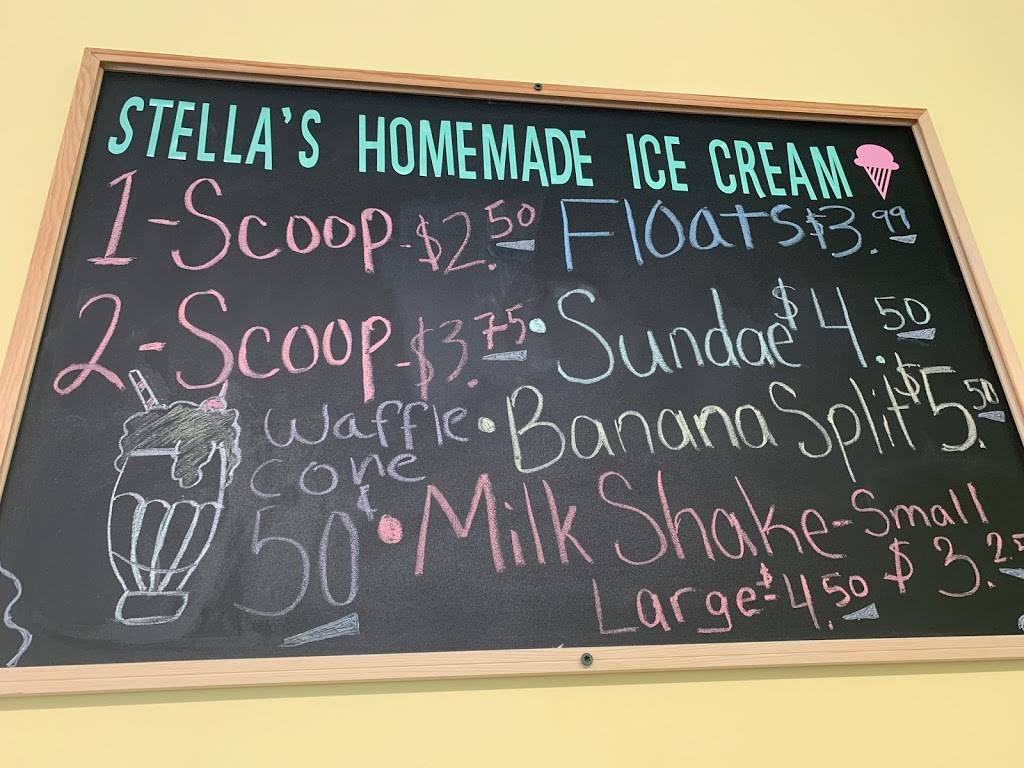 STELLA'S HOMEMADE ICE CREAM
1-Scoop-$2.50
2-Scoop-$3.75
Waffle
Cone
50¢
Floats $3.99
• Sundae $4.50
• Banana Split $5.50
• Milk Shake - Small
$3.25
Large - $4.50